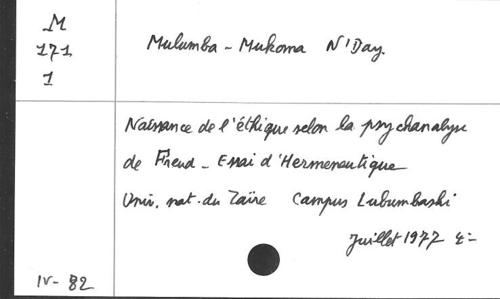 M
171
1
Mulumba - Mukoma N'Day.
Naissance de l'éthique selon la psychanalyse
de Freud - Essai d'Hermeneutique
Univ. nat. du Zaïre Campus Lubumbashi
Juillet 1977
IV- 82